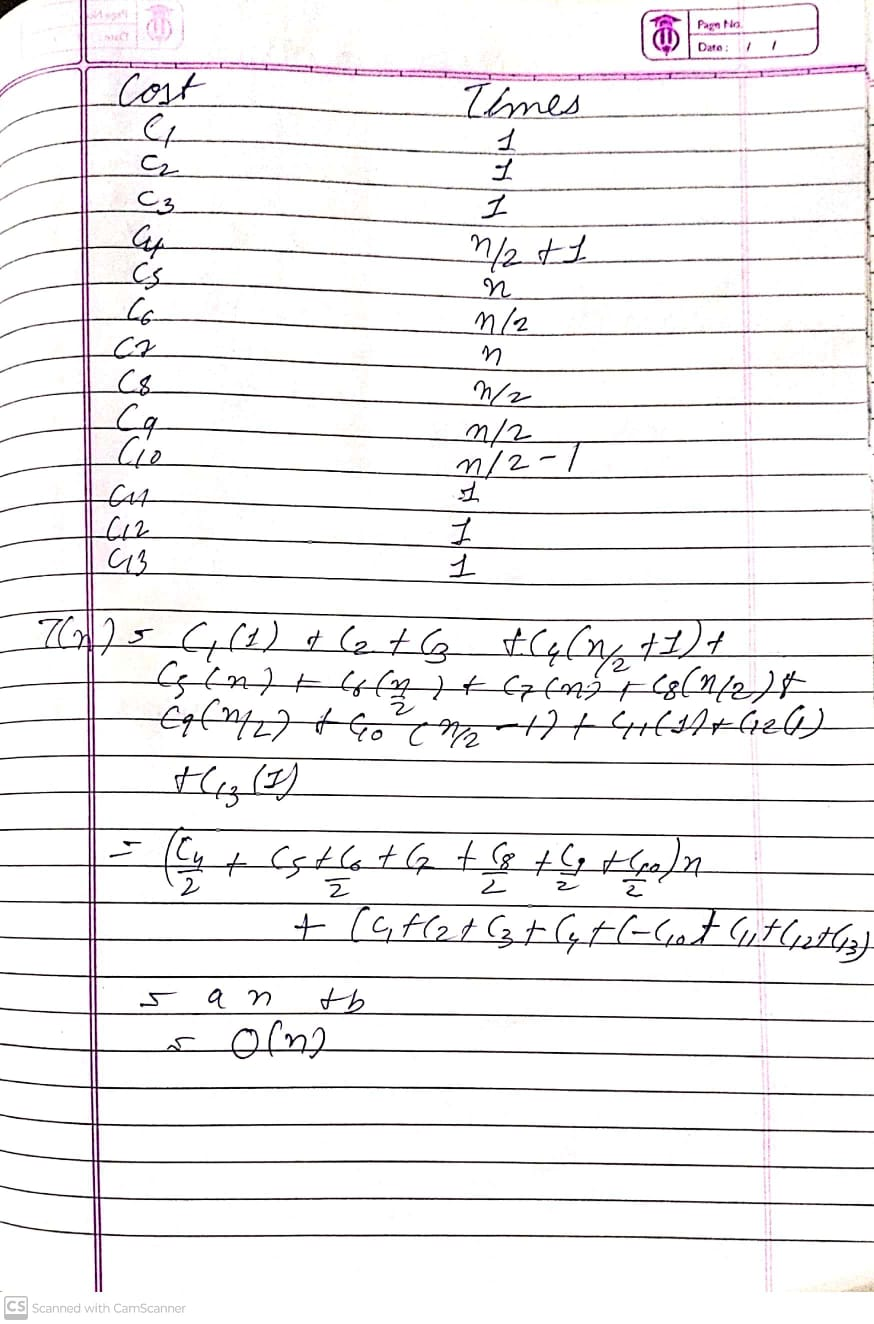 Page No.
Date: / /
Cost Times
C1 1
C2 1
C3 1
C4 n/2 +1
C5 n
C6 n/2
C7 n
C8 n/2
C9 n/2
C10 n/2 -1
C11 1
C12 1
C13 1
T(n) = C1(1) + C2 + C3 + C4(n/2 +1) +
C5(n) + C6(n/2) + C7(n) + C8(n/2) +
C9(n/2) + C10(n/2 -1) + C11(1) + C12(1)
+ C13(1)
= (C4/2 + C5 + C6/2 + C7 + C8/2 + C9/2 + C10/2)n
+ (C1 + C2 + C3 + C4 + (-C10 + C11 + C12 + C13)
= an + b
= O(n)
CS Scanned with CamScanner